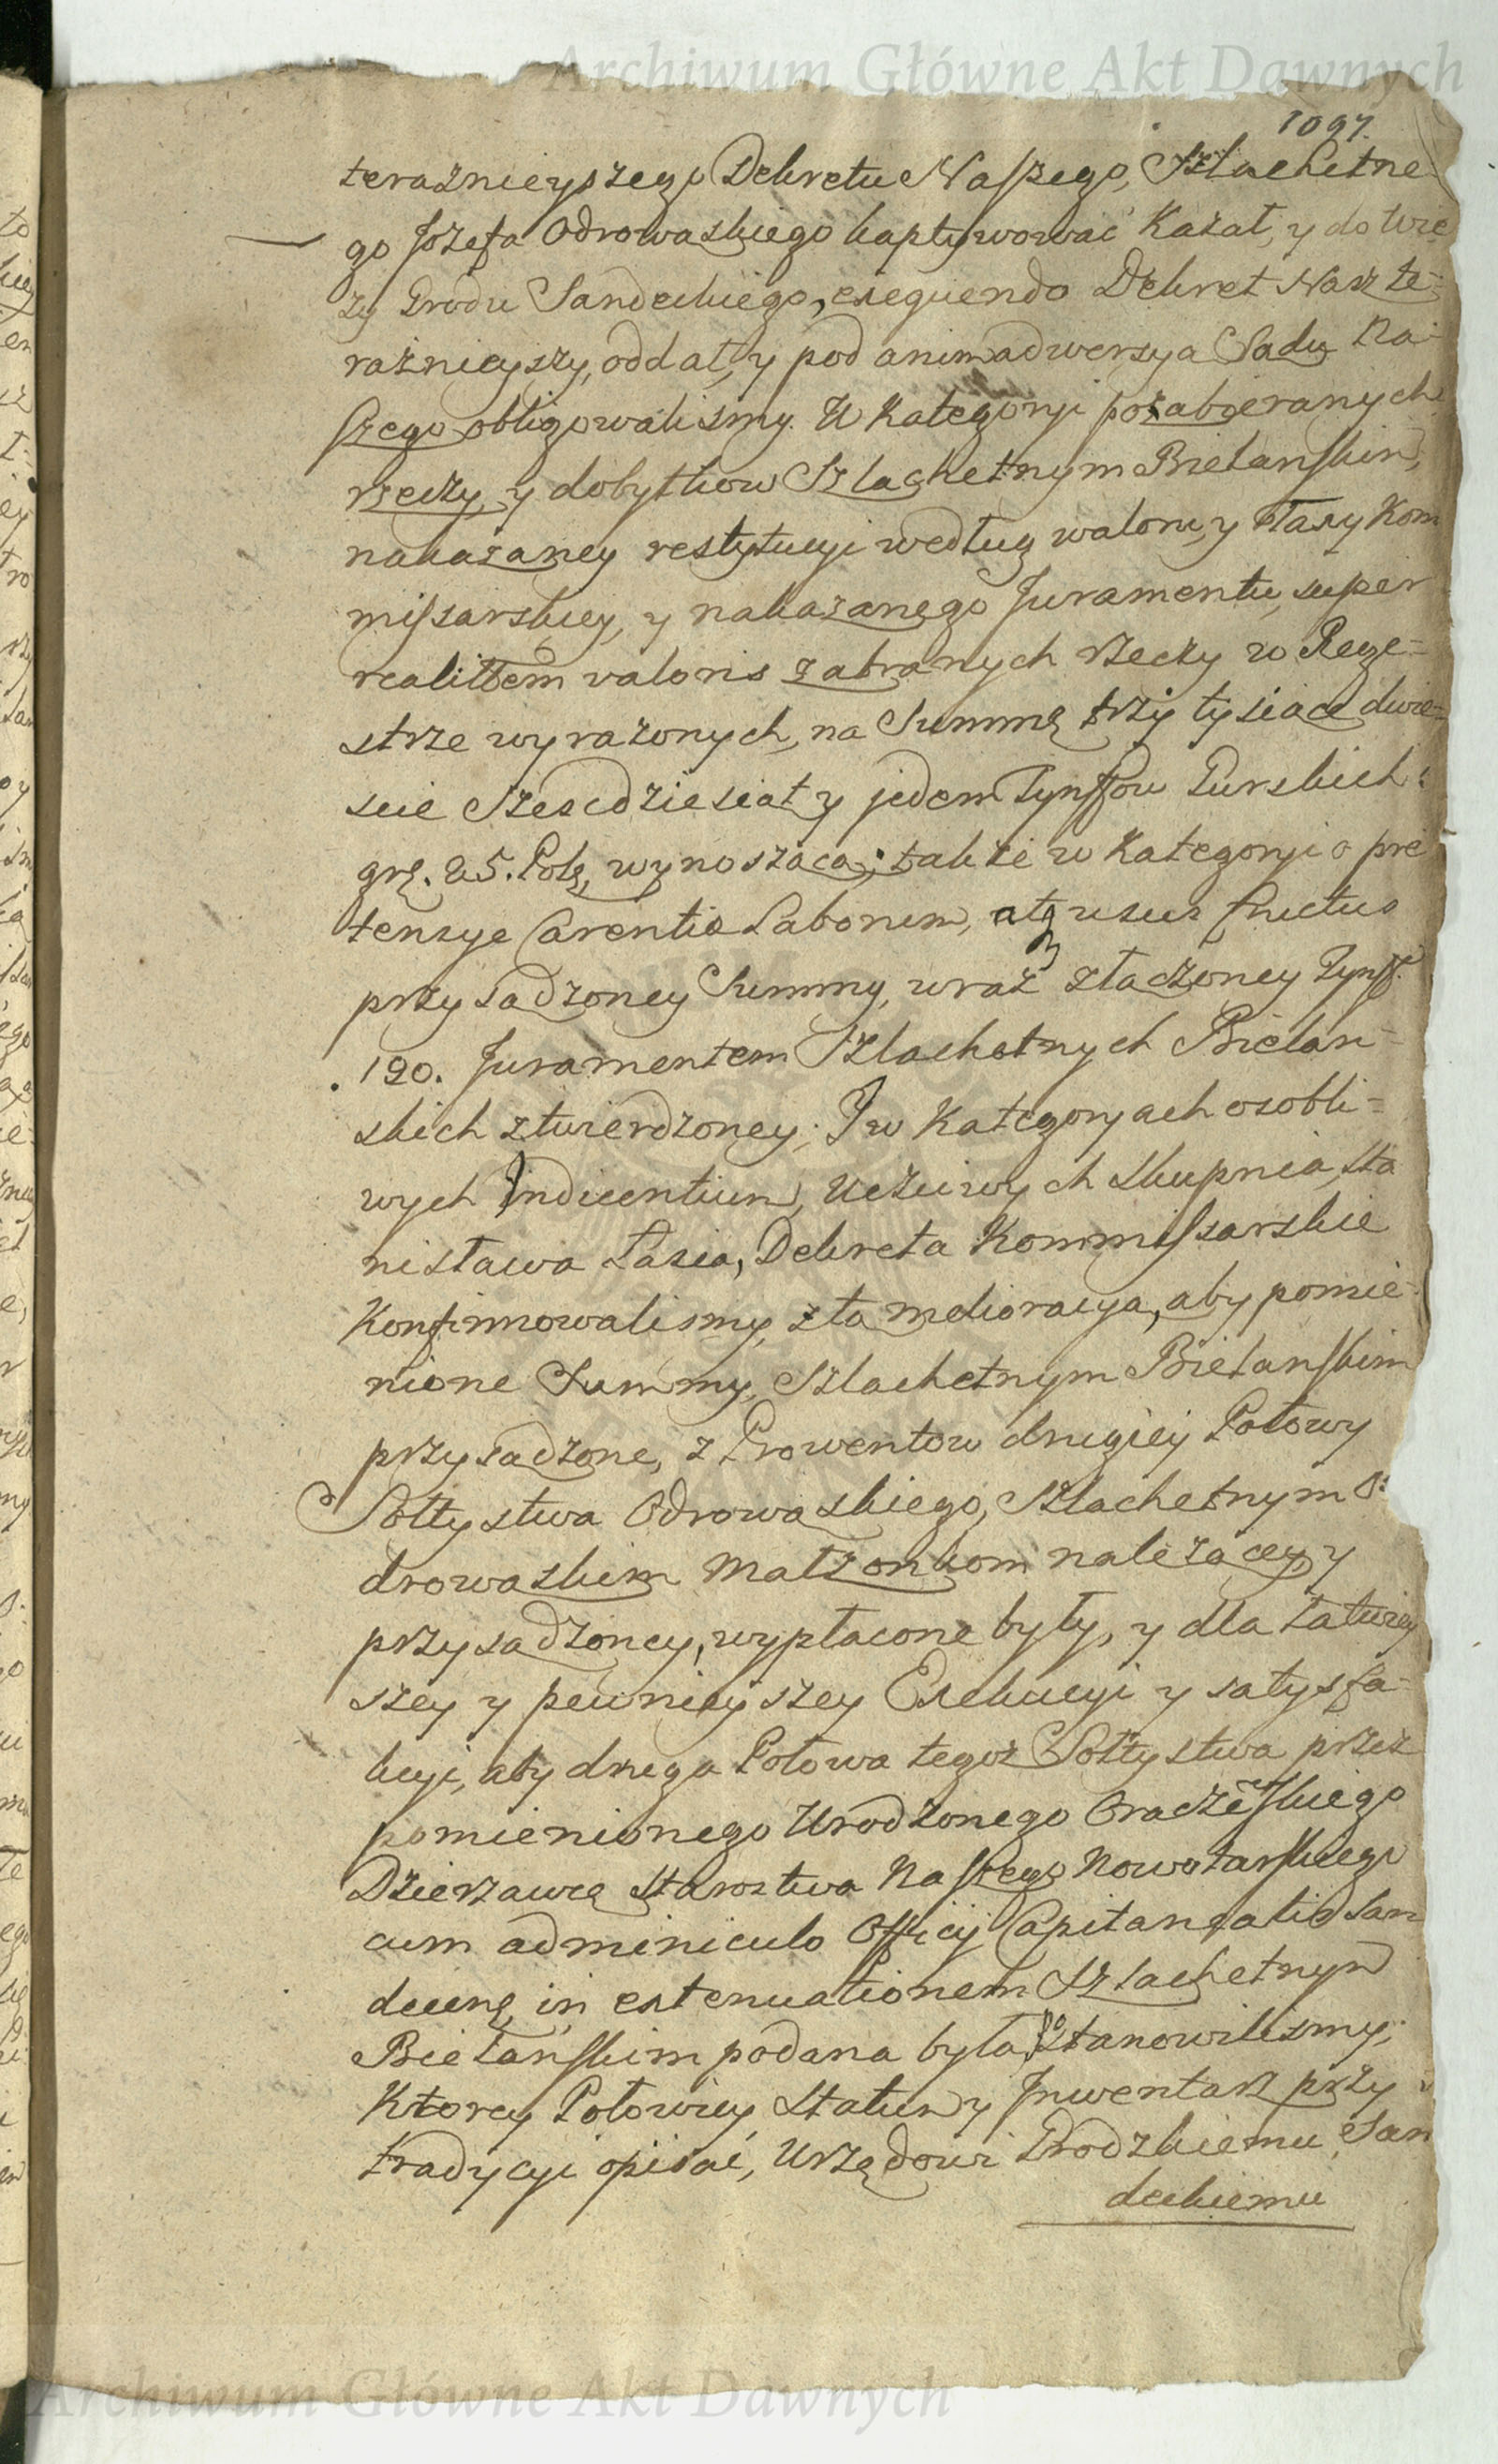 Archiwum Główne Akt Dawnych
1097.
teraznieyszego Dekretu Naszego, Szlachetne-
go Jozefa Odrowąskiego kaptywować Kazał, y do Wie
zy Grodu Sandeckiego, exequendo Dekret Nasz te-
raznieyszy, oddał, y pod animadwersyą Sądu Na-
szego obligowalismy. W Kategoryi pozabieranych
rzeczy, y dobytkow Szlachetnym Bielanskim,
nakazaney restytucyi według waloru, y taxy Kom
missarskiey, y nakazanego Juramentu, super
realitatem valoris zabranych rzeczy w Rege-
strze wyrazonych, na Summę trzy tysiące dwie-
scie szescdziesiąt y jeden Tynffow Turskich
grz. 25. Polg, wynoszącą; także w Kategoryi o pre
tensye Carentiæ Laborum, atq usus fructus
przysądzoney Summy, wraz złączoney Tynff.
120. Juramentem Szlachetnych Bielan-
skich ztwierdzoney; J w Kategoryach osobli-
wych Indicentium, Uczciwych Skupnia, Sta
nisława Łasia, Dekreta Kommissarskie
Konfirmowalismy, z tą melioracyą, aby pomie-
nione Summy, Szlachetnym Bielanskim
przysądzone, z Prowentow drugiey Połowy
Sołtystwa Odrowąskiego, Szlachetnym O-
drowąskim Małzonkom należącey, y
przysądzoney, wypłacone były, y dla łatwiey
szey y pewnieyszey Exekucyi y satysfa-
kcyi, aby druga Połowa tegoż Sołtystwa przez
pomienionego Urodzonego Oraczewskiego
Dzierzawcę Starostwa Naszego Nowotarskiego
cum adminiculo Officij Capitanealis San
decens, in extenuationem Szlachetnym
Bielanskim podana była, postanowilismy;
Ktorey Połowiey Statum y Jnwentarz przy
tradycyi opisać, Urzędowi Grodzkiemu San
deckiemu
Archiwum Główne Akt Dawnych